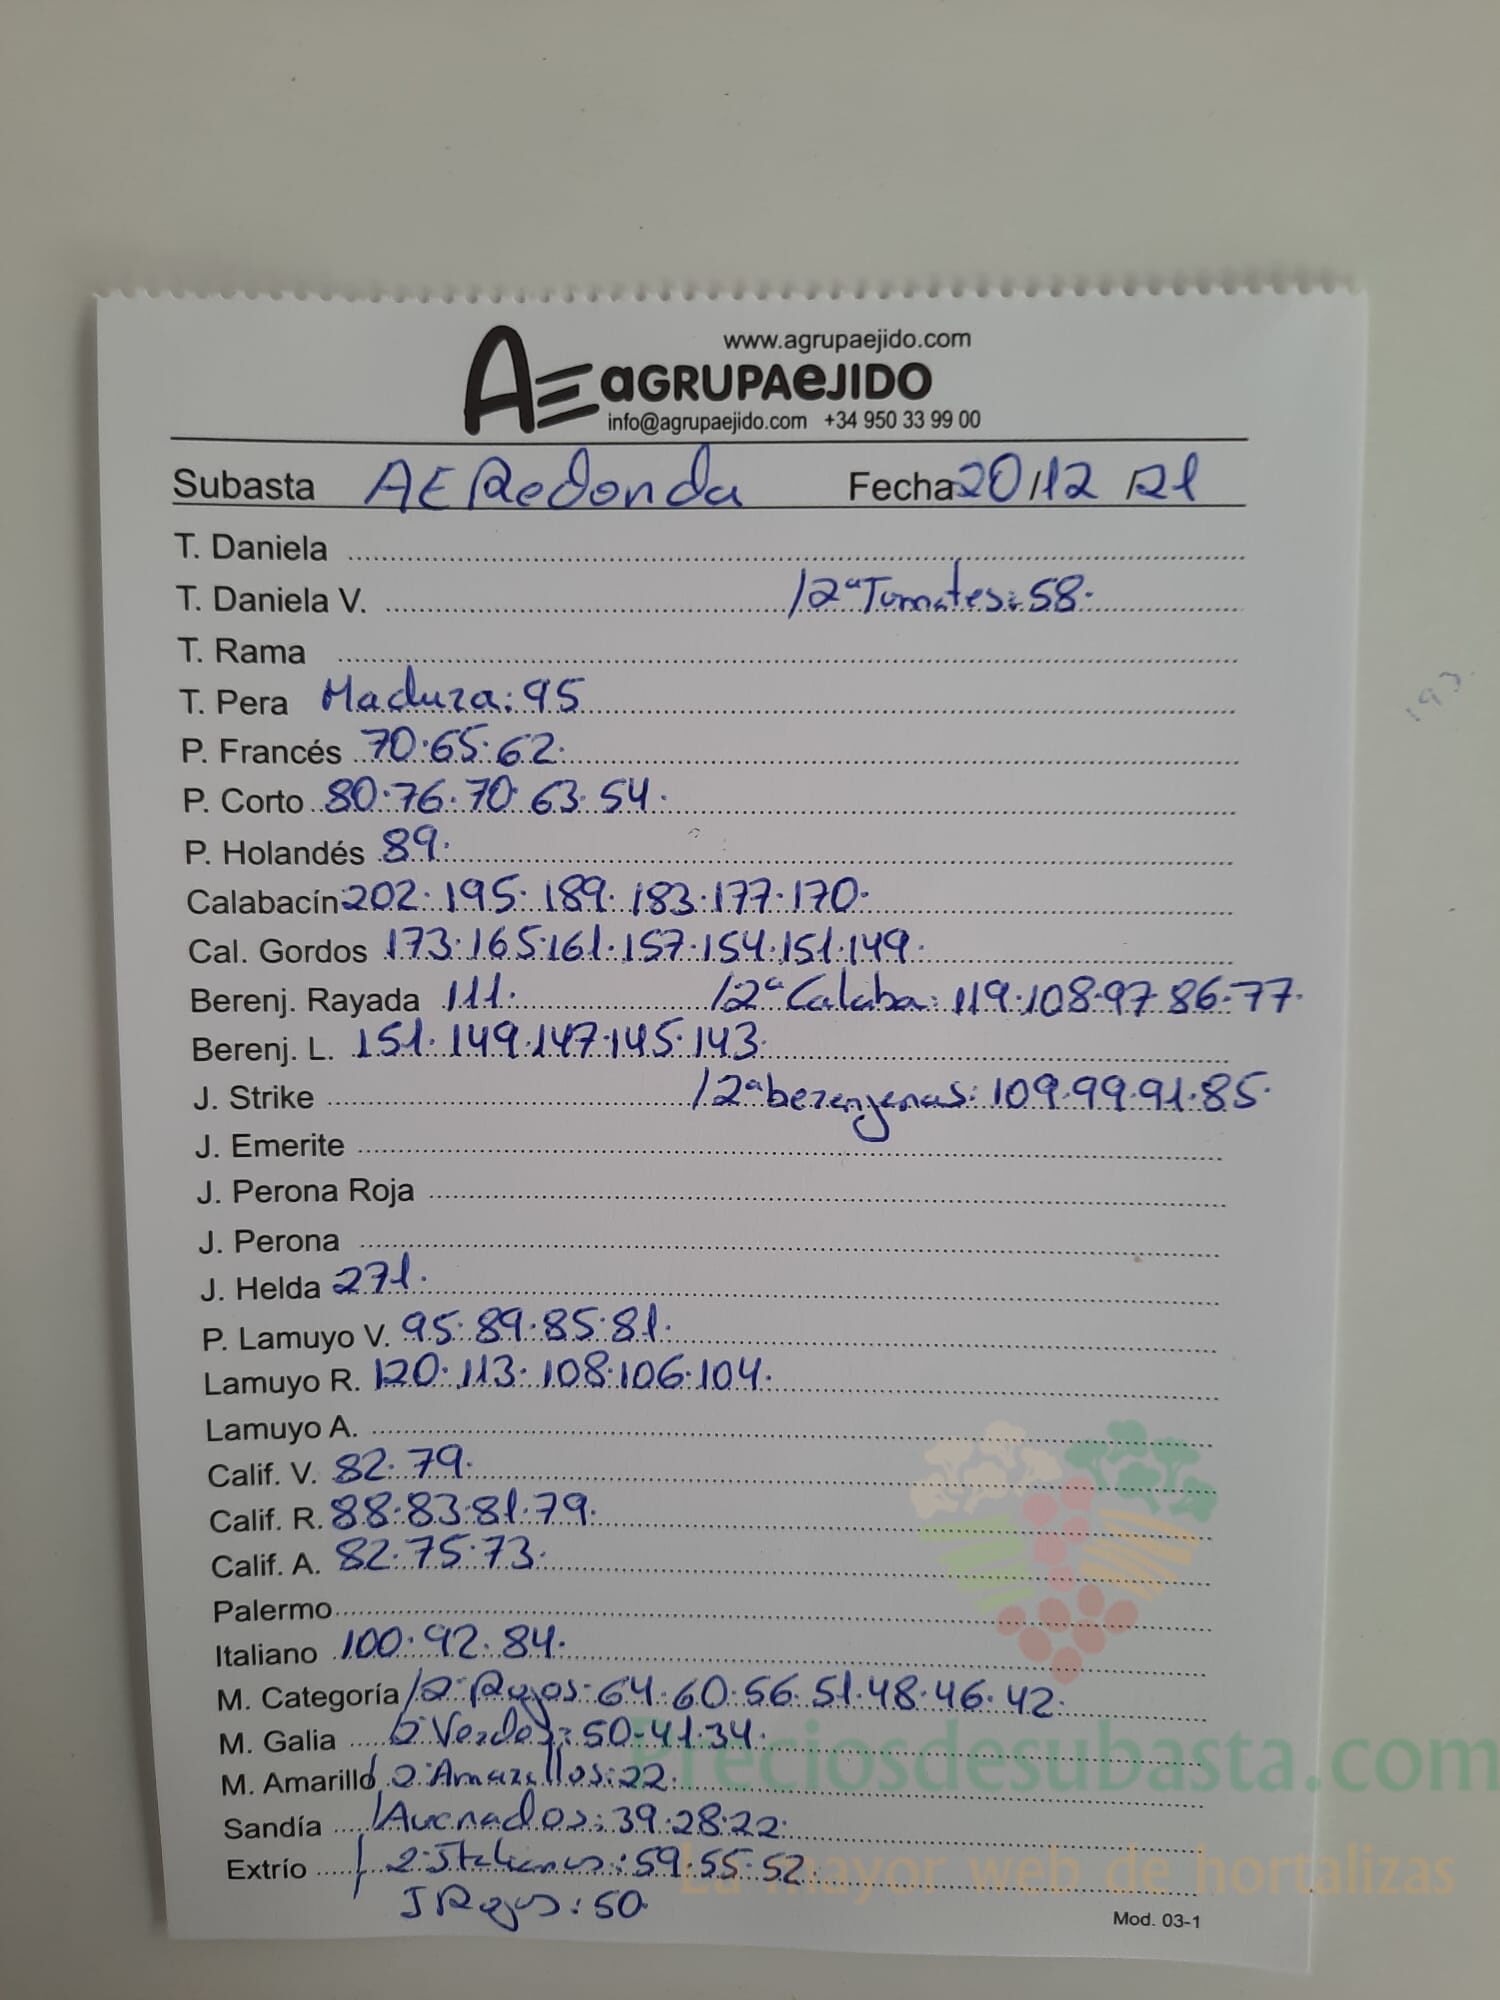 www.agrupaejido.com
AE aGRUPAeJIDO
info@agrupaejido.com +34 950 33 99 00
Subasta AE Redonda Fecha 20/12/21
T. Daniela
T. Daniela V. /2ª Tomates: 58.
T. Rama
T. Pera Madura: 95
P. Francés 70.65.62.
P. Corto 80.76.70.63.54.
P. Holandés 89.
Calabacín 202.195.189.183.177.170.
Cal. Gordos 173.165.161.157.154.151.149.
Berenj. Rayada 111. /2ª Calaba: 119.108.97.86.77.
Berenj. L. 151.149.147.145.143.
J. Strike /2ª berenjenas: 109.99.91.85.
J. Emerite
J. Perona Roja
J. Perona
J. Helda 271.
P. Lamuyo V. 95.89.85.81.
Lamuyo R. 120.113.108.106.104.
Lamuyo A.
Calif. V. 82.79.
Calif. R. 88.83.81.79.
Calif. A. 82.75.73.
Palermo
Italiano 100.92.84.
M. Categoría /2ª Rojos: 64.60.56.51.48.46.42.
M. Galia 2ª Verdes: 50-41.34.
M. Amarillo 2ª Amarillos: 22.
Sandía /Asurcados: 39.28.22.
Extrío 2ª Italianos: 59.55.52.
I Rojos: 50.
Mod. 03-1
Preciosdesubasta.com
La mayor web de hortalizas